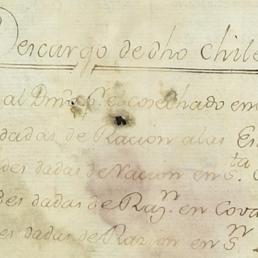 Descargo de dho Chile
al Dmo cosechado en
dadas de Racion a las Es
des dadas de Racion en S.ta
des dadas de Raz.n en Cova
es dadas de Razion en S.n